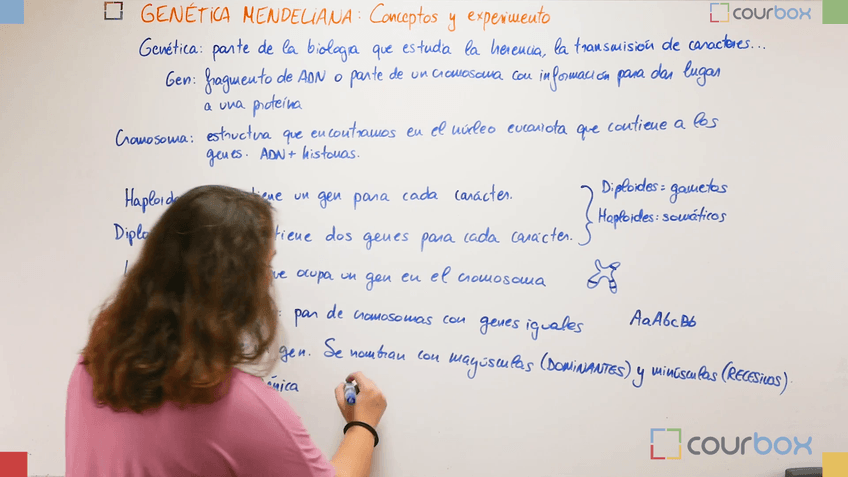 GENÉTICA MENDELIANA: Conceptos y experimento
courbox
Genética: parte de la biología que estudia la herencia, la transmisión de caracteres...
Gen: fragmento de ADN o parte de un cromosoma con información para dar lugar
a una proteína
Cromosoma: estructura que encontramos en el núcleo eucariota que contiene a los
genes. ADN + histonas.
Haploide tiene un gen para cada carácter.
Diploides = gametos
Haploides = somáticos
Diplo tiene dos genes para cada carácter.
que ocupa un gen en el cromosoma
: par de cromosomas con genes iguales
AaAbcBb
gen. Se nombran con mayúsculas (DOMINANTES) y minúsculas (RECESIVOS).
courbox